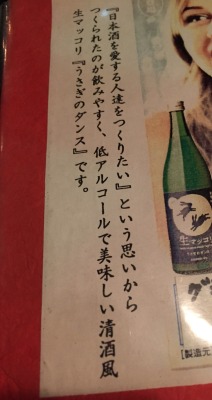 『日本酒を愛する人達をつくりたい』という思いから
つくられたのが飲みやすく、低アルコールで美味しい清酒風
生マッコリ『うさぎのダンス』です。
生マッコリ
【製造元